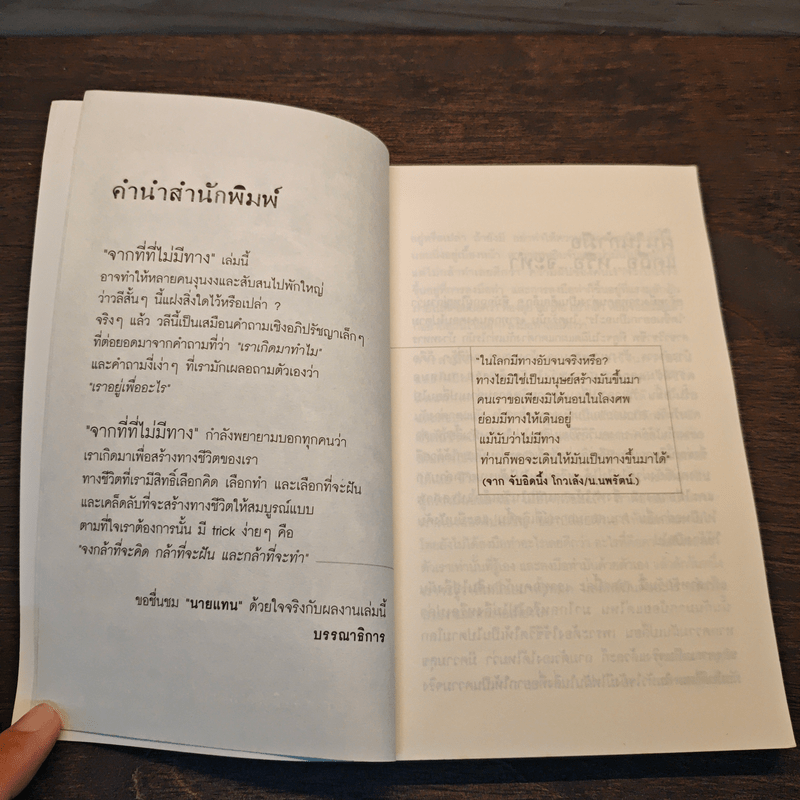 คำนำสำนักพิมพ์
"จากที่ที่ไม่มีทาง" เล่มนี้
อาจทำให้หลายคนงุนงงและสับสนไปพักใหญ่
ว่าวลีสั้นๆ นี้แฝงสิ่งใดไว้หรือเปล่า ?
จริงๆ แล้ว วลีนี้เป็นเสมือนคำถามเชิงอภิปรัชญาเล็กๆ
ที่ต่อยอดมาจากคำถามที่ว่า "เราเกิดมาทำไม"
และคำถามงี่เง่าๆ ที่เรามักเผลอถามตัวเองว่า
"เราอยู่เพื่ออะไร"
"จากที่ที่ไม่มีทาง" กำลังพยายามบอกทุกคนว่า
เราเกิดมาเพื่อสร้างทางชีวิตของเรา
ทางชีวิตที่เรามีสิทธิ์เลือกคิด เลือกทำ และเลือกที่จะฝัน
และเคล็ดลับที่จะสร้างทางชีวิตให้สมบูรณ์แบบ
ตามที่ใจเราต้องการนั้น มี trick ง่ายๆ คือ
"จงกล้าที่จะคิด กล้าที่จะฝัน และกล้าที่จะทำ"
ขอชื่นชม "นายแทน" ด้วยใจจริงกับผลงานเล่มนี้
บรรณาธิการ
"ในโลกมีทางอับจนจริงหรือ?
ทางไยมิใช่เป็นมนุษย์สร้างมันขึ้นมา
คนเราขอเพียงมิได้นอนในโลงศพ
ย่อมมีทางให้เดินอยู่
แม้นับว่าไม่มีทาง
ท่านก็พอจะเดินให้มันเป็นทางขึ้นมาได้"
(จาก จับอิดนึ้ง โกวเล้ง/น.นพรัตน์.)